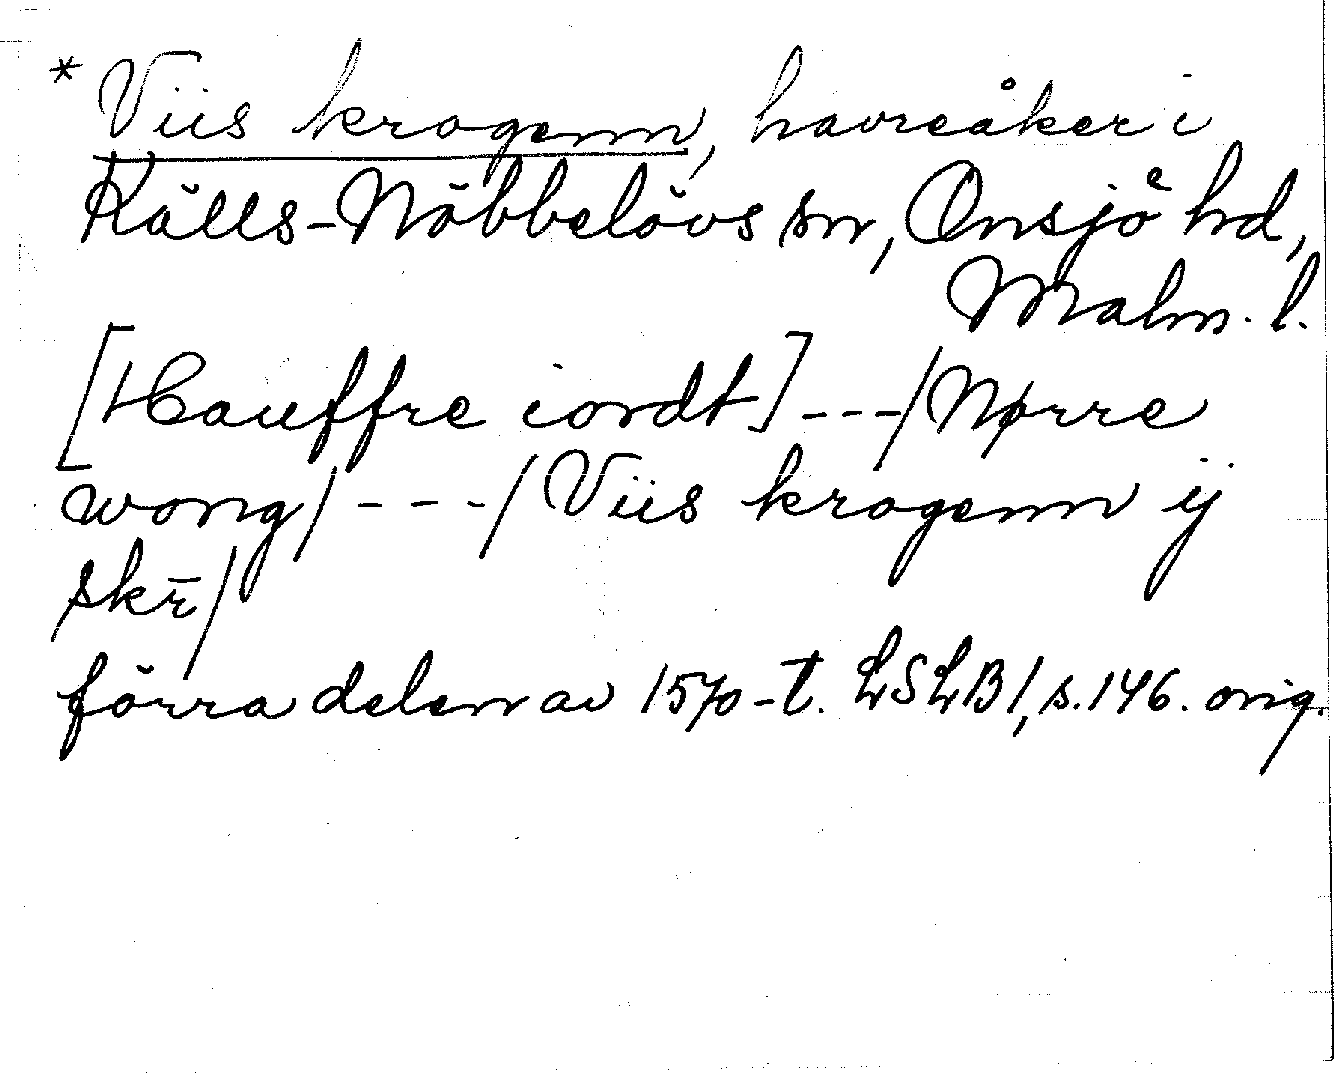 * Viis krogenn, havreåker i
Källs-Nöbbelövs sn, Onsjö hd,
Malm. l.
[Hauffre iordt] ---/Nørre
wong/ ---/Viis krogenn ij
skr̄/
förra delen av 1570-t. LSLB1, s. 146. orig.